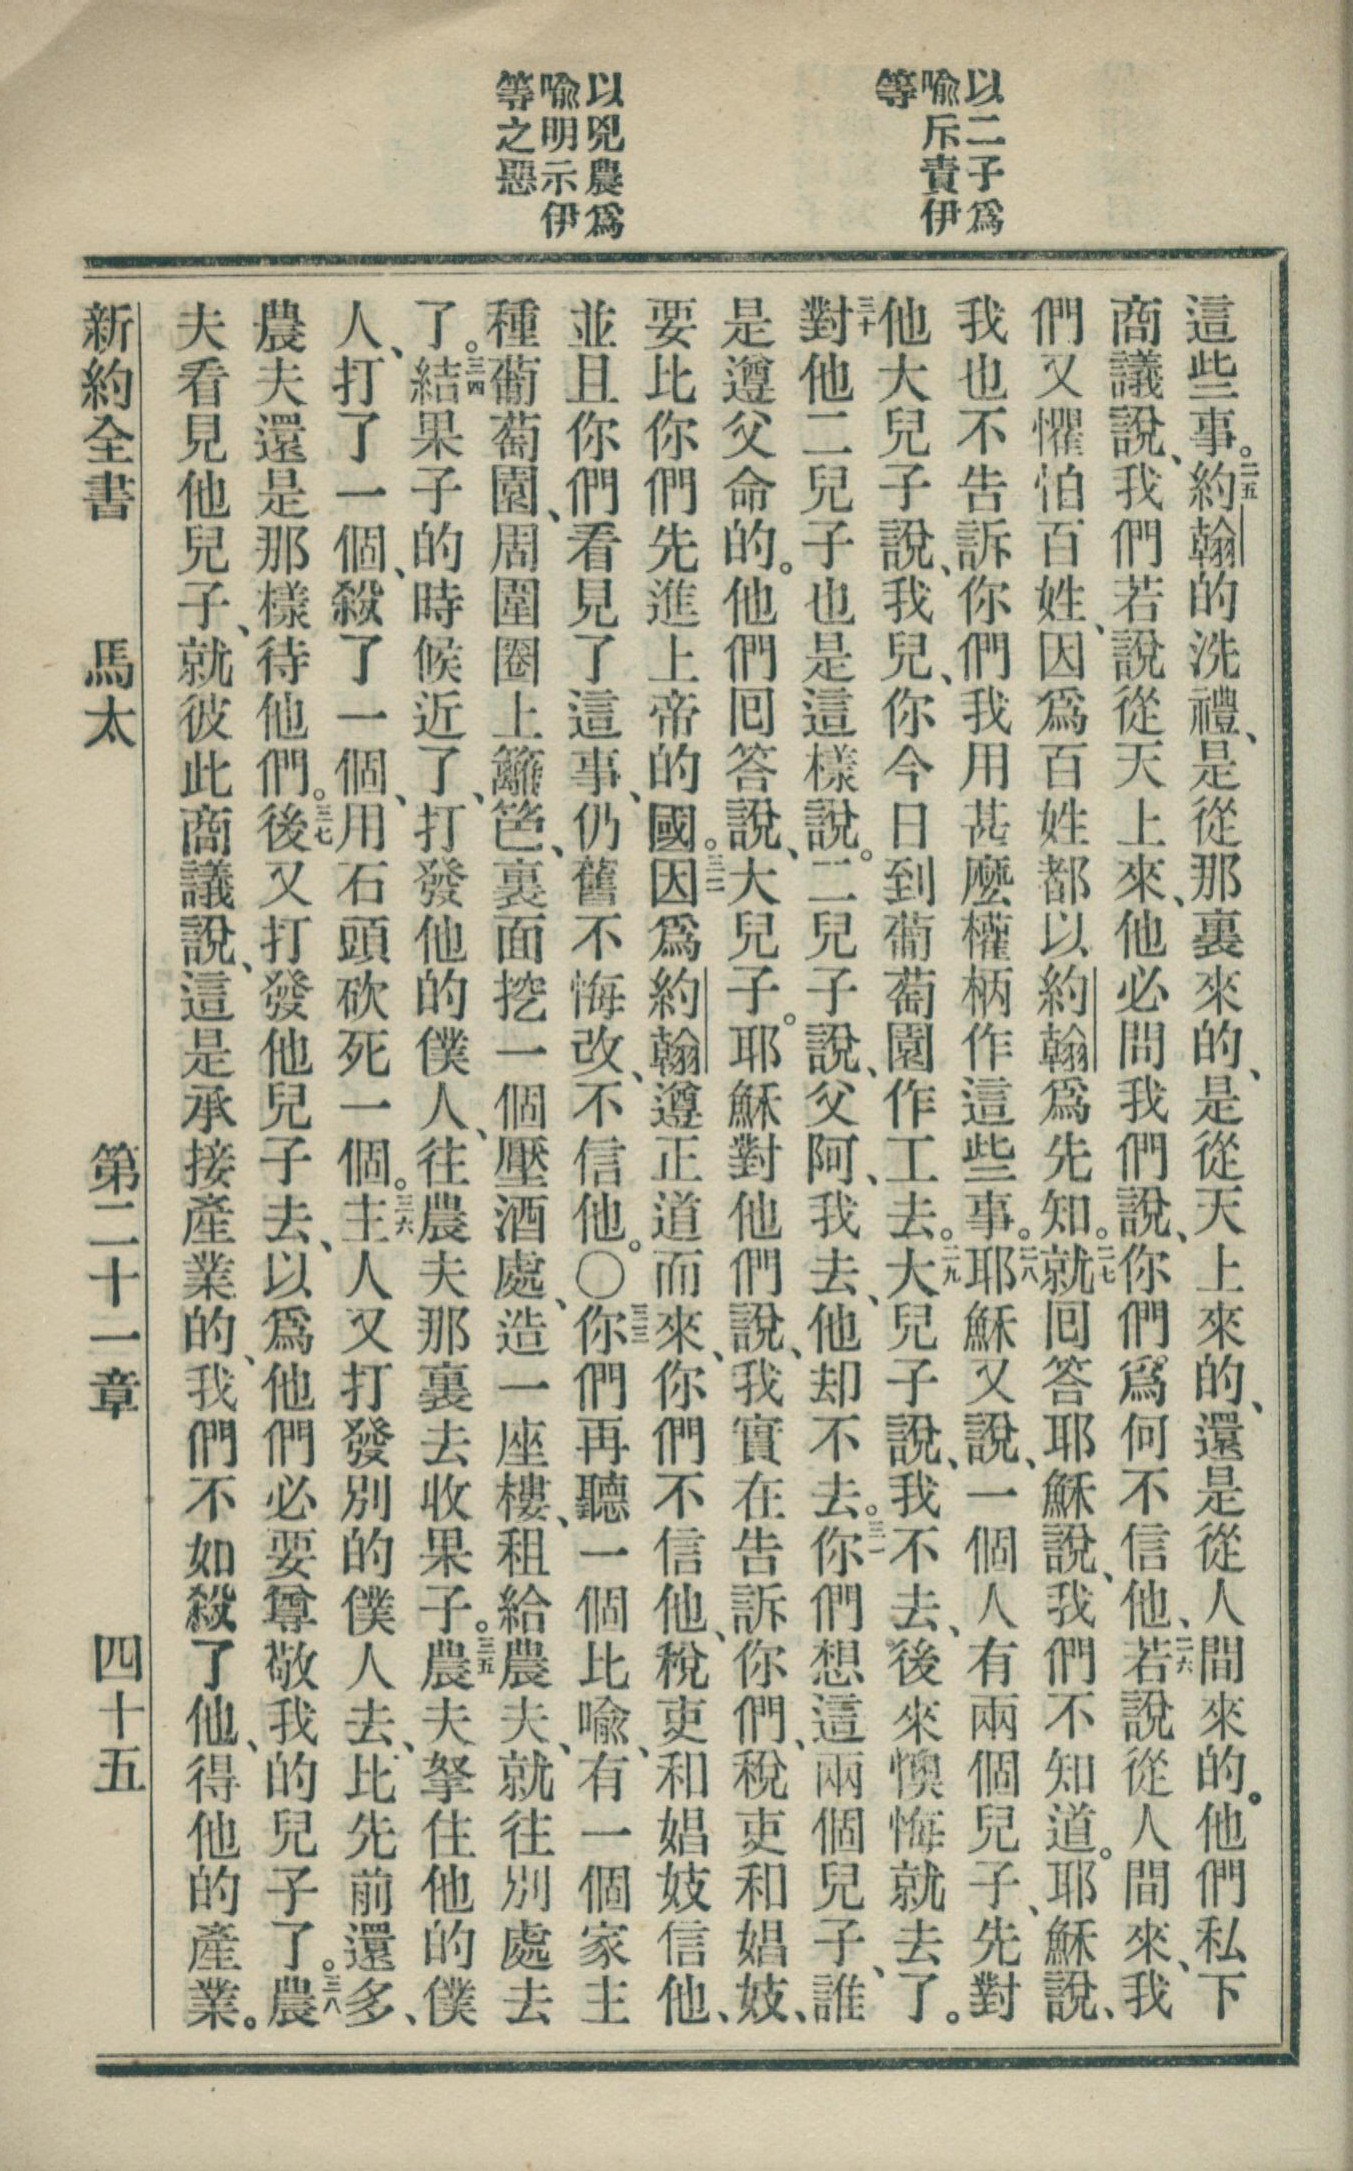 以二子爲
喻斥責伊
等
以兇農爲
喻明示伊
等之惡
這些事。二五約翰的洗禮、是從那裏來的、是從天上來的、還是從人間來的。他們私下
商議說、我們若說從天上來、他必問我們說、你們爲何不信他、二六若說從人間來、我
們又懼怕百姓、因爲百姓都以約翰爲先知。二七就回答耶穌說、我們不知道。耶穌說、
我也不告訴你們我用甚麼權柄作這些事。二八耶穌又說、一個人有兩個兒子、先對
他大兒子說、我兒、你今日到葡萄園作工去。二九大兒子說、我不去、後來懊悔就去了。
三十對他二兒子也是這樣說。二兒子說、父阿、我去、他却不去。三一你們想這兩個兒子、誰
是遵父命的。他們回答說、大兒子。耶穌對他們說、我實在告訴你們、稅吏和娼妓、
要比你們先進上帝的國。三二因爲約翰遵正道而來、你們不信他、稅吏和娼妓信他、
並且你們看見了這事、仍舊不悔改、不信他。〇三三你們再聽一個比喻、有一個家主
種葡萄園、周圍圈上籬笆、裏面挖一個壓酒處、造一座樓、租給農夫、就往別處去
了。三四結果子的時候近了、打發他的僕人、往農夫那裏去收果子。三五農夫拏住他的僕
人、打了一個、殺了一個、用石頭砍死一個。三六主人又打發別的僕人去、比先前還多、
農夫還是那樣待他們。三七後又打發他兒子去、以爲他們必要尊敬我的兒子了。三八農
夫看見他兒子、就彼此商議說、這是承接產業的、我們不如殺了他、得他的產業。
新約全書　馬太　第二十一章　四十五